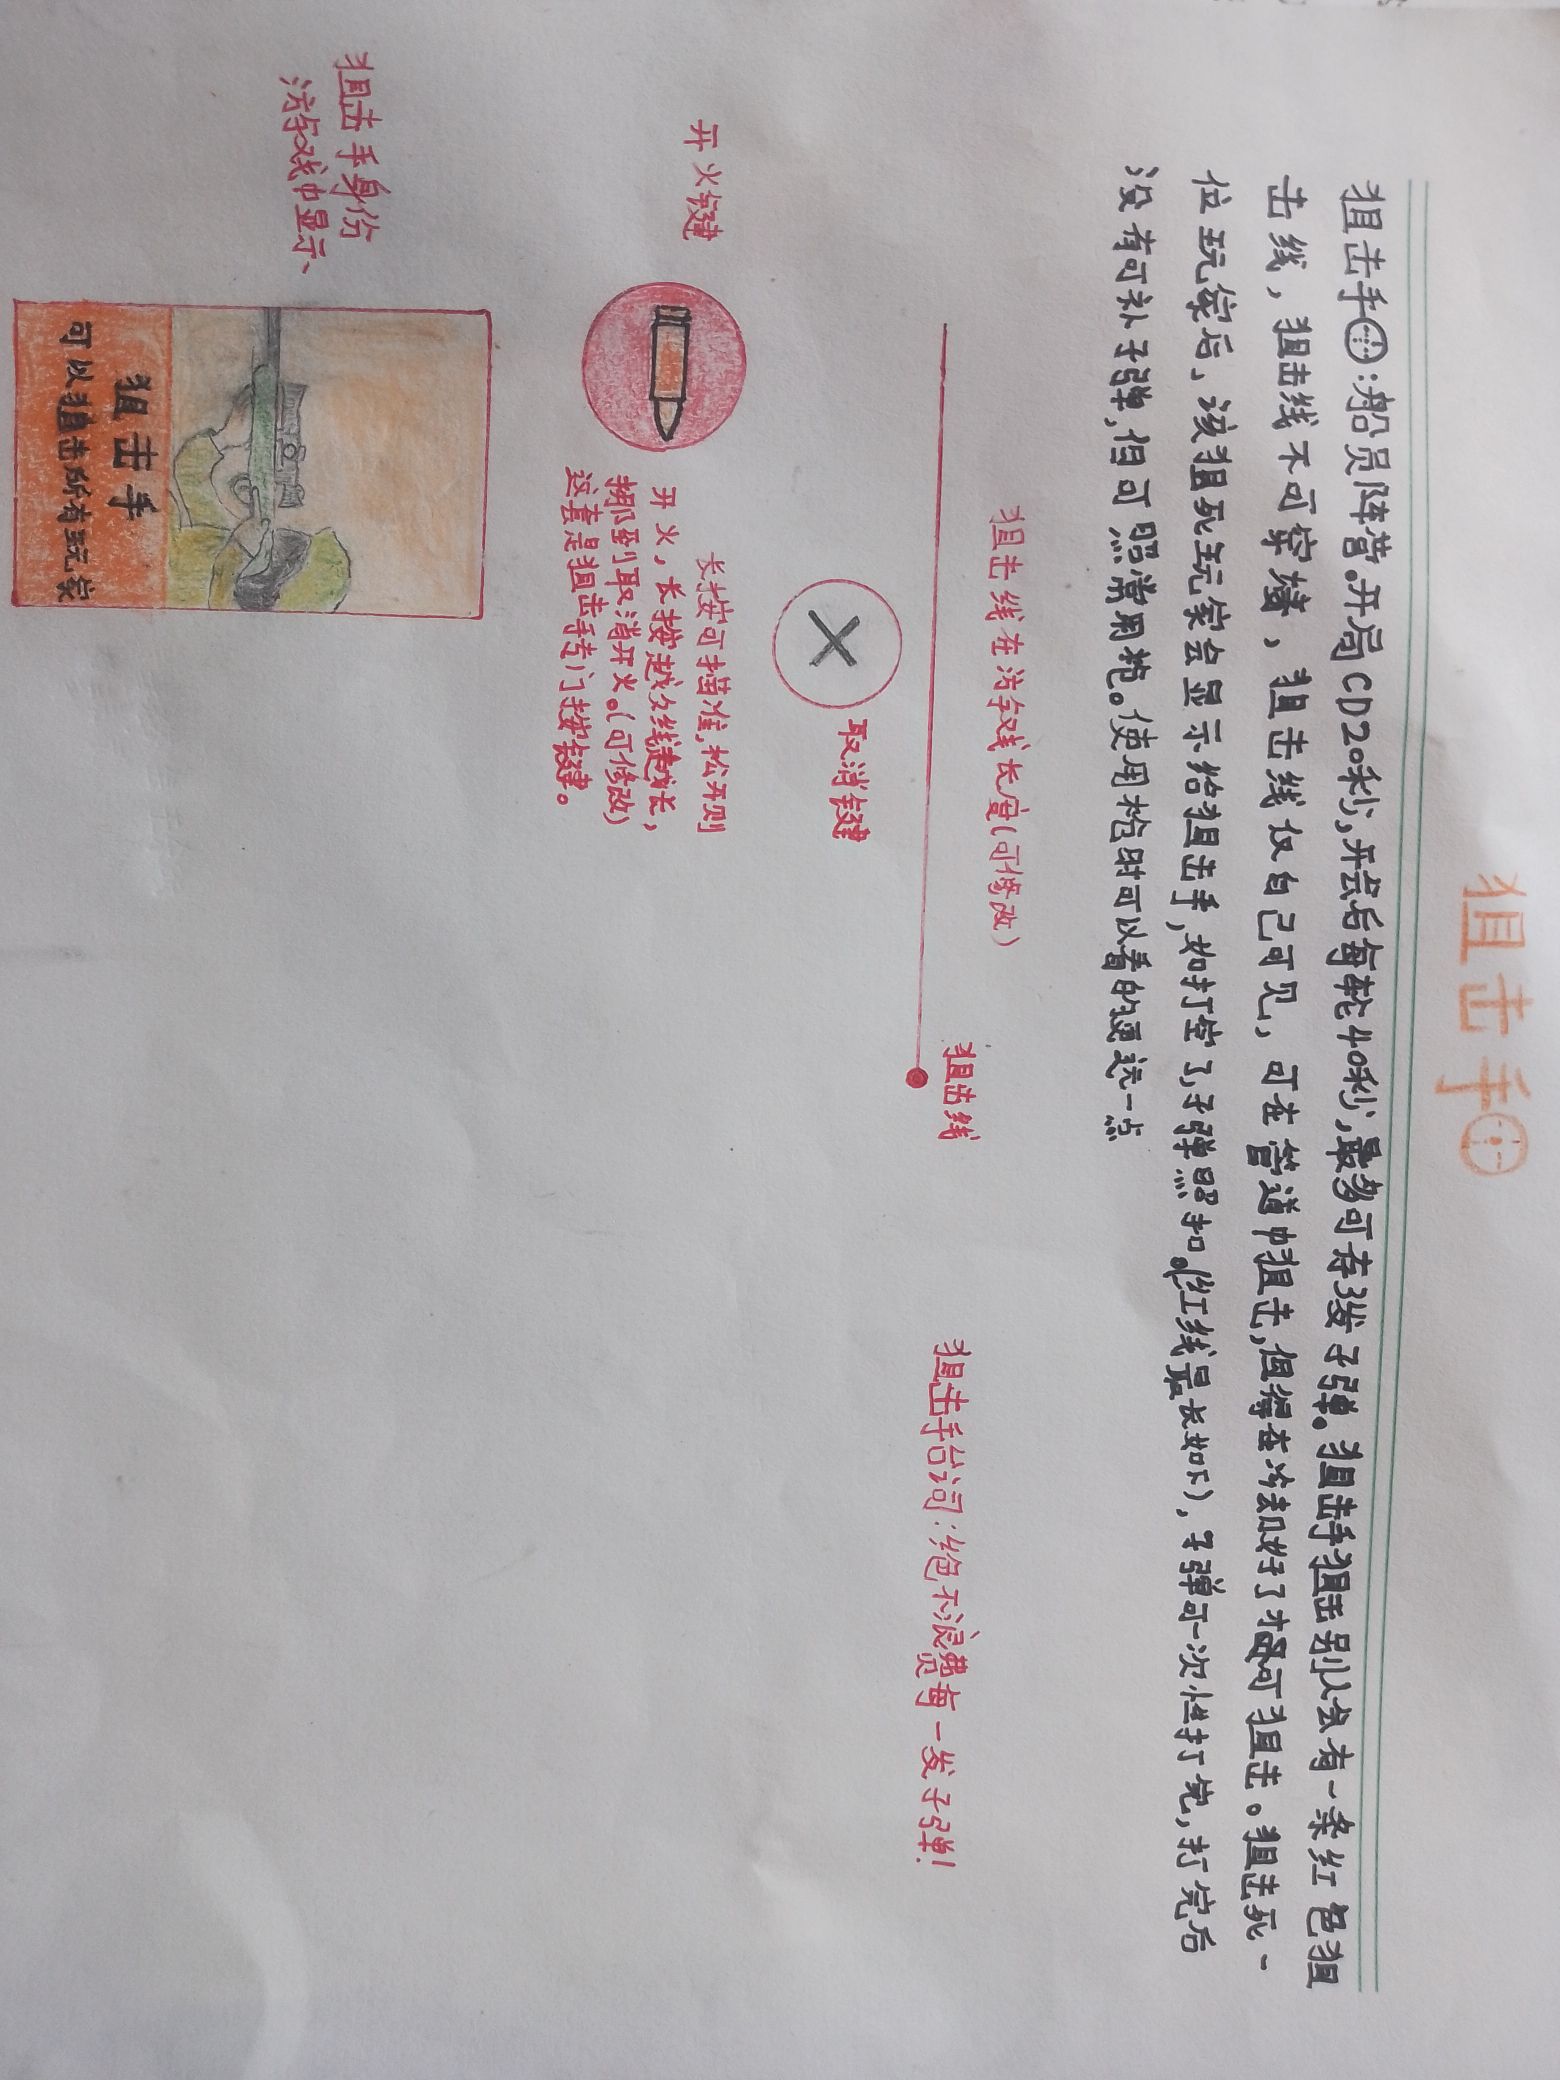 狙击手
狙击手:船员阵营。开局CD20秒,开会后每轮40秒,最多可存3发子弹。狙击手狙击别人会有一条红色狙
击线,狙击线不可穿墙,狙击线仅自己可见,可在管道中狙击,但得在冷却好了才可狙击。狙击死一
位玩家后,该狙死玩家会显示给狙击手,如打空了,子弹照扣。(红线最长如下),子弹可一次性打完,打完后
没有可补子弹,但可照常用枪。使用枪时可以看的更远一点
狙击线在游戏长度(可修改)
狙击线
狙击手台词:绝不浪费每一发子弹!
取消键
开火键
长按可描准,松开则
开火,长按越久线越长,
挪到取消开火。(可修改)
这套是狙击手专门按键。
狙击手身份
游戏中显示、
狙击手
可以狙击所有玩家